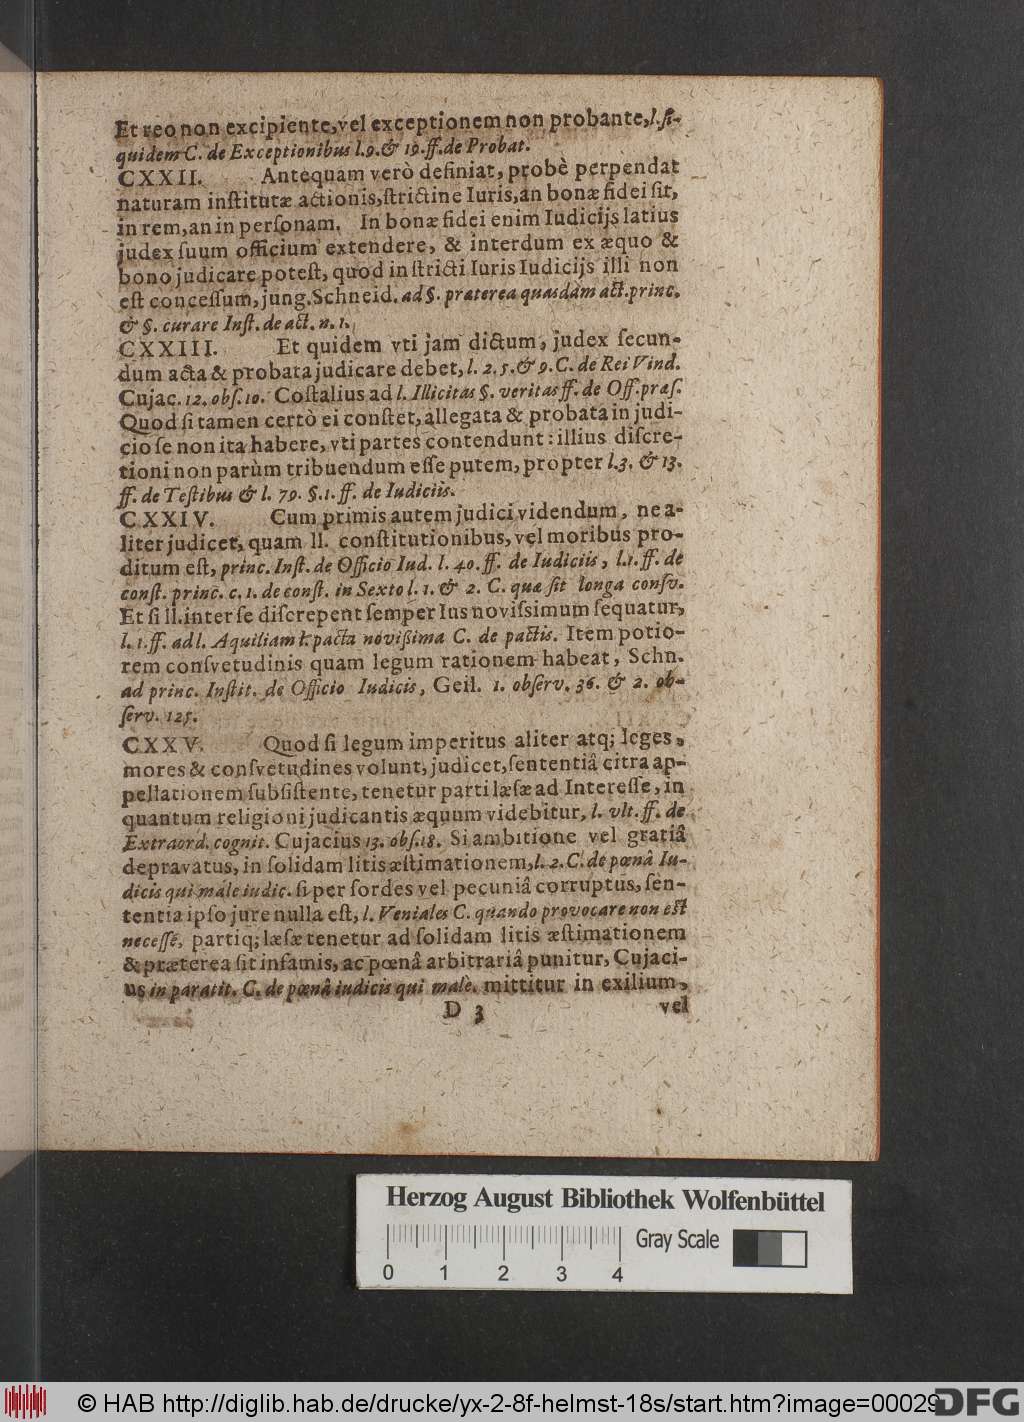 Et reo non excipiente, vel exceptionem non probante, l. ſi-
quidem C. de Exceptionibus l. 9. & 19. ff. de Probat.
CXXII. Antequam verò definiat, probè perpendat
naturam inſtitutæ actionis, ſtrictine Iuris, an bonæ fidei ſit,
in rem, an in perſonam. In bonæ fidei enim Iudicijs latius
judex ſuum officium extendere, & interdum ex æquo &
bono judicare poteſt, quod in ſtricti Iuris Iudicijs illi non
eſt conceſſum, jung. Schneid. ad §. præterea quasdam act. princ.
& §. curare Inſt. de act. n. 1.
CXXIII. Et quidem vti jam dictum, judex ſecun-
dum acta & probata judicare debet, l. 2. 5. & 9. C. de Rei Vind.
Cujac. 12. obſ. 10. Coſtalius ad l. Illicitas §. veritas ff. de Off. præſ.
Quod ſi tamen certò ei conſtet, allegata & probata in judi-
cio ſe non ita habere, vti partes contendunt: illius diſcre-
tioni non parùm tribuendum eſſe putem, propter l. 3. & 13.
ff. de Teſtibus & l. 79. §. 1. ff. de Iudiciis.
CXXIV. Cum primis autem judici videndum, ne a-
liter judicet, quam ll. conſtitutionibus, vel moribus pro-
ditum eſt, princ. Inſt. de Officio Iud. l. 40. ff. de Iudiciis, l. 1. ff. de
conſt. princ. c. 1. de conſt. in Sexto l. 1. & 2. C. quæ ſit longa conſv.
Et ſi ll. inter ſe diſcrepent ſemper Ius noviſsimum ſequatur,
l. 1. ff. ad l. Aquiliam l. pacta noviſsima C. de pactis. Item potio-
rem conſvetudinis quam legum rationem habeat, Schn.
ad princ. Inſtit. de Officio Iudicis, Geil. 1. obſerv. 36. & 2. ob-
ſerv. 125.
CXXV. Quod ſi legum imperitus aliter atq; leges,
mores & conſvetudines volunt, judicet, ſententiâ citra ap-
pellationem ſubſiſtente, tenetur parti læſæ ad Intereſſe, in
quantum religioni judicantis æquum videbitur, l. vlt. ff. de
Extraord. cognit. Cujacius 13. obſ. 18. Si ambitione vel gratiâ
depravatus, in ſolidam litis æſtimationem, l. 2. C. de pœnâ Iu-
dicis qui male iudic. ſi per ſordes vel pecuniâ corruptus, ſen-
tentia ipſo jure nulla eſt, l. Veniales C. quando provocare non eſt
neceſſé, partiq; læſæ tenetur ad ſolidam litis æſtimationem
& præterea ſit infamis, ac pœnâ arbitrariâ punitur, Cujaci-
us in paratit. C. de pœnâ iudicis qui male. mittitur in exilium,
D 3 vel
Herzog August Bibliothek Wolfenbüttel
Gray Scale
0 1 2 3 4
© HAB http://diglib.hab.de/drucke/yx-2-8f-helmst-18s/start.htm?image=00029
DFG